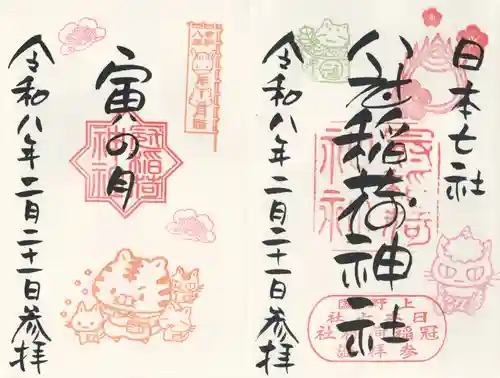 日本七社
冠稲荷神社
令和八年二月二十一日参拝
上野國
日本七社
冠稲荷神社
参拝証
寅の月
冠稲荷
神社
令和八年二月二十一日参拝